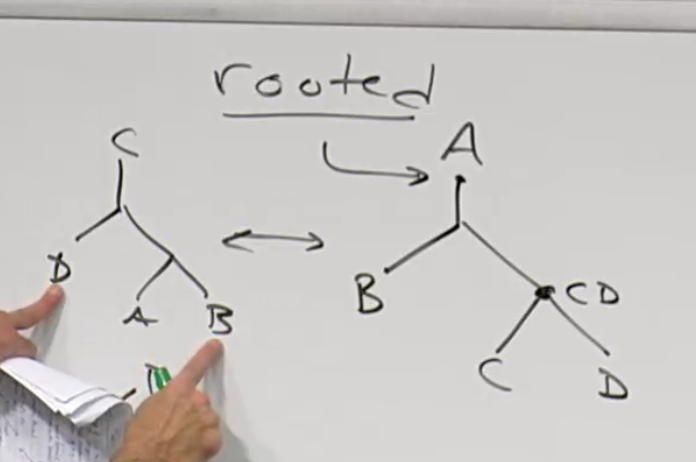 rooted
C
A
D
A
B
B
CD
C
D